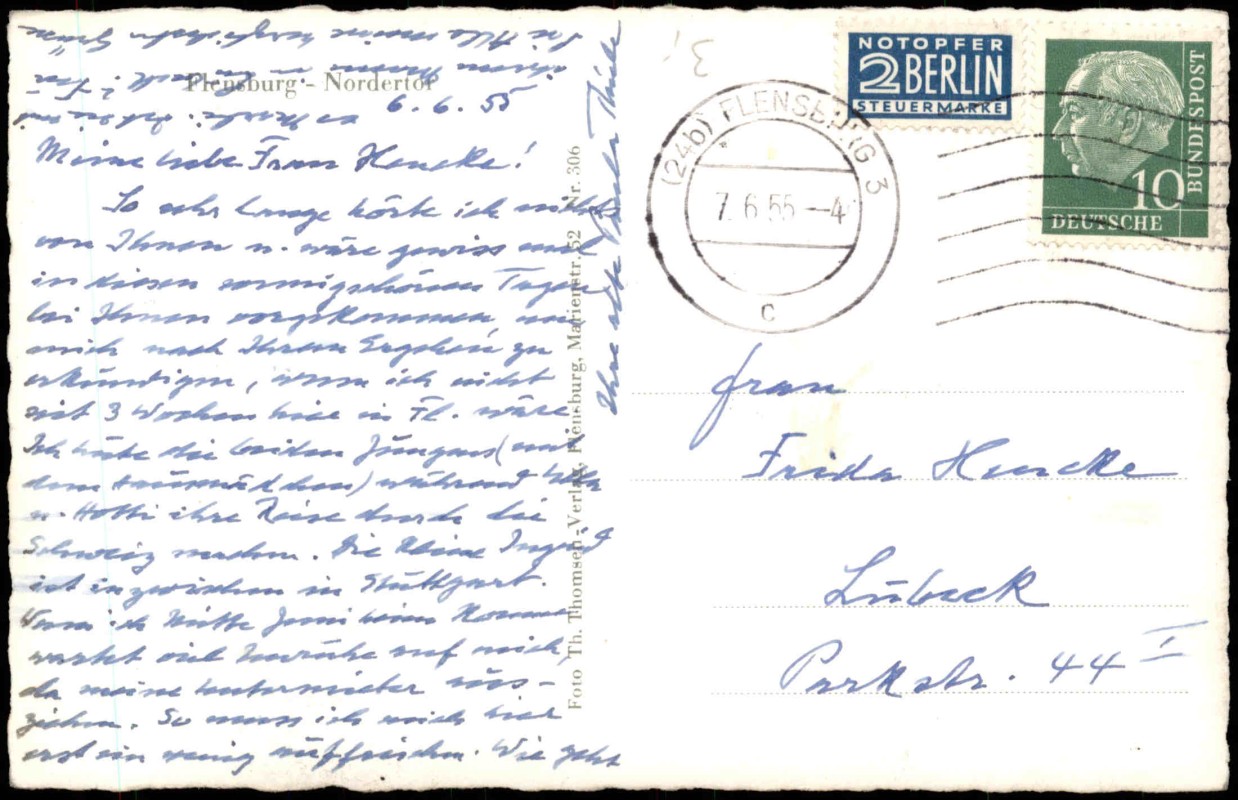 Flensburg - Nordertor
6. 6. 55
Meine liebe Frau Hencke!
So sehr lange hörte ich nichts
von Ihnen u. wäre gewiss mal
in diesen sonnigschönen Tagen
bei Ihnen vorgekommen, um
mich nach Ihrem Ergehen zu
erkundigen, wenn ich nicht
seit 3 Wochen hier in Fl. wäre
Ich hüte die beiden Jungens (mit
dem Hausmädchen) während
u. Hotti ihre Reise durch die
Schweiz machen. Die kleine Ingrid
ist inzwischen in Stuttgart.
Wenn ich Mitte Juni heim komme
wartet viel Unruhe auf mich,
da meine Untermieter aus-
ziehen. So muss ich mich hier
erst ein wenig auffrischen. Wie geht
es
Sie Alle meine herzlichsten Grüße
Ihre alte
Foto Th. Thomsen-Verlag, Flensburg, Marienstr. 52 Nr. 306
(24b) FLENSBURG 3
7. 6. 55 - 4
c
NOTOPFER
2 BERLIN
STEUERMARKE
DEUTSCHE
BUNDESPOST
10
Frau
Frida Hencke
Lübeck
Parkstr. 44 I